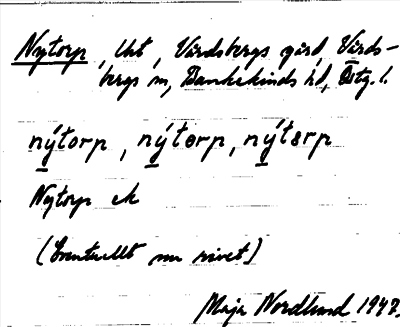 Nytorp, lht, Vårdsbergs gård, Vårds-
bergs sn, Bankekinds hd, Östg. l.
nýtorp, nýtɵrp, nýtɵrp
Nytorp ek
(Eventuellt nu rivet)
Maja Nordlund 1947.